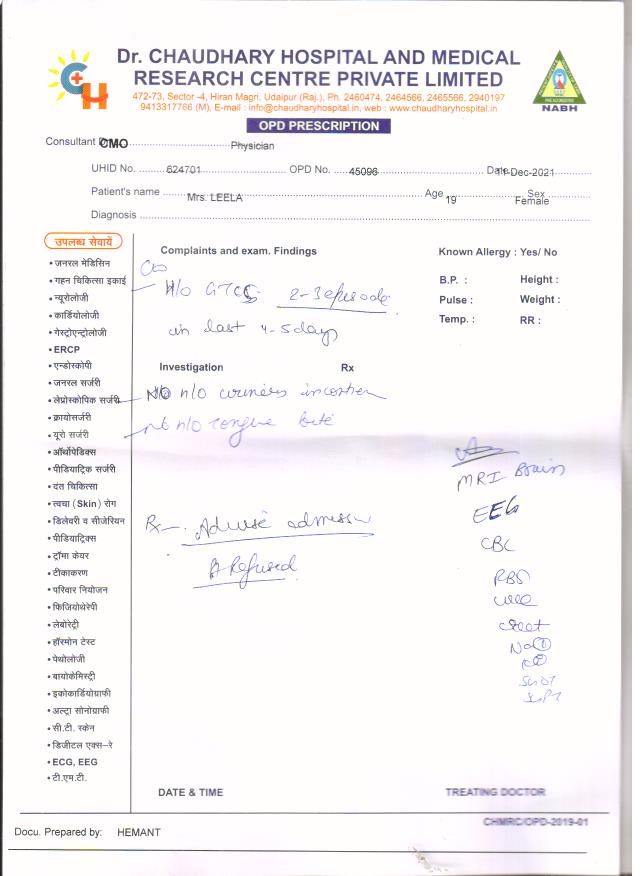 Dr. CHAUDHARY HOSPITAL AND MEDICAL
RESEARCH CENTRE PRIVATE LIMITED
472-73, Sector -4, Hiran Magri, Udaipur (Raj.), Ph. 2460474, 2464566, 2465566, 2940197
9413317766 (M), E-mail : info@chaudharyhospital.in, web : www.chaudharyhospital.in
NABH
OPD PRESCRIPTION
Consultant CMO Physician
UHID No. 624701 OPD No. 45096 Date Dec-2021
Patient's name Mrs. LEELA Age 19 Sex Female
Diagnosis
उपलब्ध सेवायें
• जनरल मेडिसिन
• गहन चिकित्सा इकाई
• न्यूरोलोजी
• कार्डियोलोजी
• गेस्ट्रोएन्ट्रोलोजी
• ERCP
• एन्डोस्कोपी
• जनरल सर्जरी
• लेप्रोस्कोपिक सर्जरी
• क्रायोसर्जरी
• यूरो सर्जरी
• ऑर्थोपेडिक्स
• पीडियाट्रिक सर्जरी
• दंत चिकित्सा
• त्वचा (Skin) रोग
• डिलेवरी व सीजेरियन
• पीडियाट्रिक्स
• ट्रॉमा केयर
• टीकाकरण
• परिवार नियोजन
• फिजियोथेरेपी
• लेबोरेट्री
• हॉरमोन टेस्ट
• पेथोलोजी
• बायोकेमिस्ट्री
• इकोकार्डियोग्राफी
• अल्ट्रा सोनोग्राफी
• सी.टी. स्केन
• डिजीटल एक्स-रे
• ECG, EEG
• टी.एम.टी.
Complaints and exam. Findings
C/o
H/o GTCS 2-3 episode
in last 4-5 days
Known Allergy : Yes/ No
B.P. : Height :
Pulse : Weight :
Temp. : RR :
Investigation Rx
No h/o
No h/o tongue bite
Rx Advise admission
Refused
MRI Brain
EEG
CBC
RBS
Urea
Creat
Na+
K+
SGOT
SGPT
DATE & TIME TREATING DOCTOR
CHMRC/OPD-2019-01
Docu. Prepared by: HEMANT